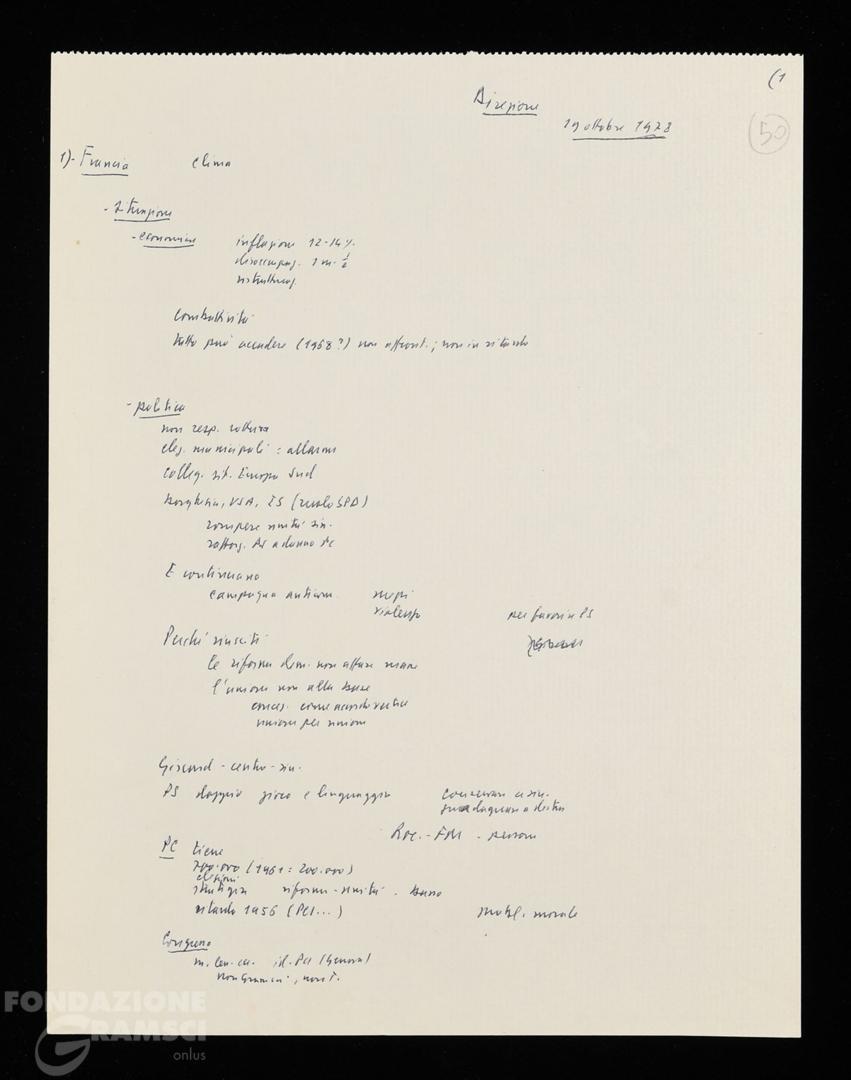 (1
Direzione
19 ottobre 1978
50
1)- Francia clima
- Situazione
- economica inflazione 12-14%
disoccupaz. 1 m. ½
ristrutturaz.
Combattività
tutto può accadere (1968?) non affront.; non in ritardo
- politica
non resp. rottura
elez. municipali : allarme
colleg. sit. Europa Sud
borghesia, USA, IS (ruolo SPD)
rompere unità sin.
rafforz. PS a danno PC
E continuano
campagna anticom.
violenza per favorire PS
Perché riusciti
le riforme dem.
l'unione non alla base
unione per unione
Giscard - centro-sin.
PS doppio gioco e linguaggio conservare a sin.
guadagnare a destra
Roc. - FM
PC tiene
700.000 (1961: 200.000)
elezioni
strategia riforme - unità - base
ritardo 1956 (PCI...) morale
Congresso
m. len. id. PCI (Genova)
non Gramsci, non T.
FONDAZIONE
GRAMSCI
onlus